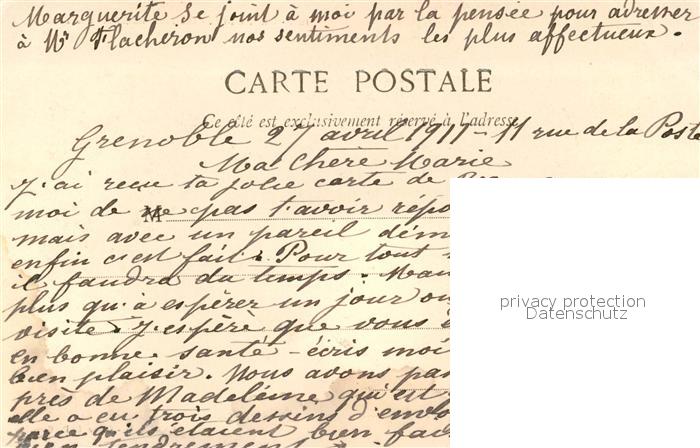 Marguerite se joint à moi par la pensée pour adresser
à Mr Flacheron nos sentiments les plus affectueux.
CARTE POSTALE
Ce côté est exclusivement réservé à l'adresse
Grenoble 27 avril 1911 - 11 rue de la Poste
Ma Chère Marie
J'ai reçu ta jolie carte de
moi de ne pas t'avoir répo
M
mais avec un pareil dém
enfin c'est fait. Pour tout
il faudra du temps.
plus qu'à espérer un jour ou
visite. J'espère que vous
en bonne santé - écris moi
bien plaisir. Nous avons pas
près de Madeleine qui est
elle a eu trois dessins d'envo
parce qu'ils étaient bien fac
bien tendrement
privacy protection
Datenschutz